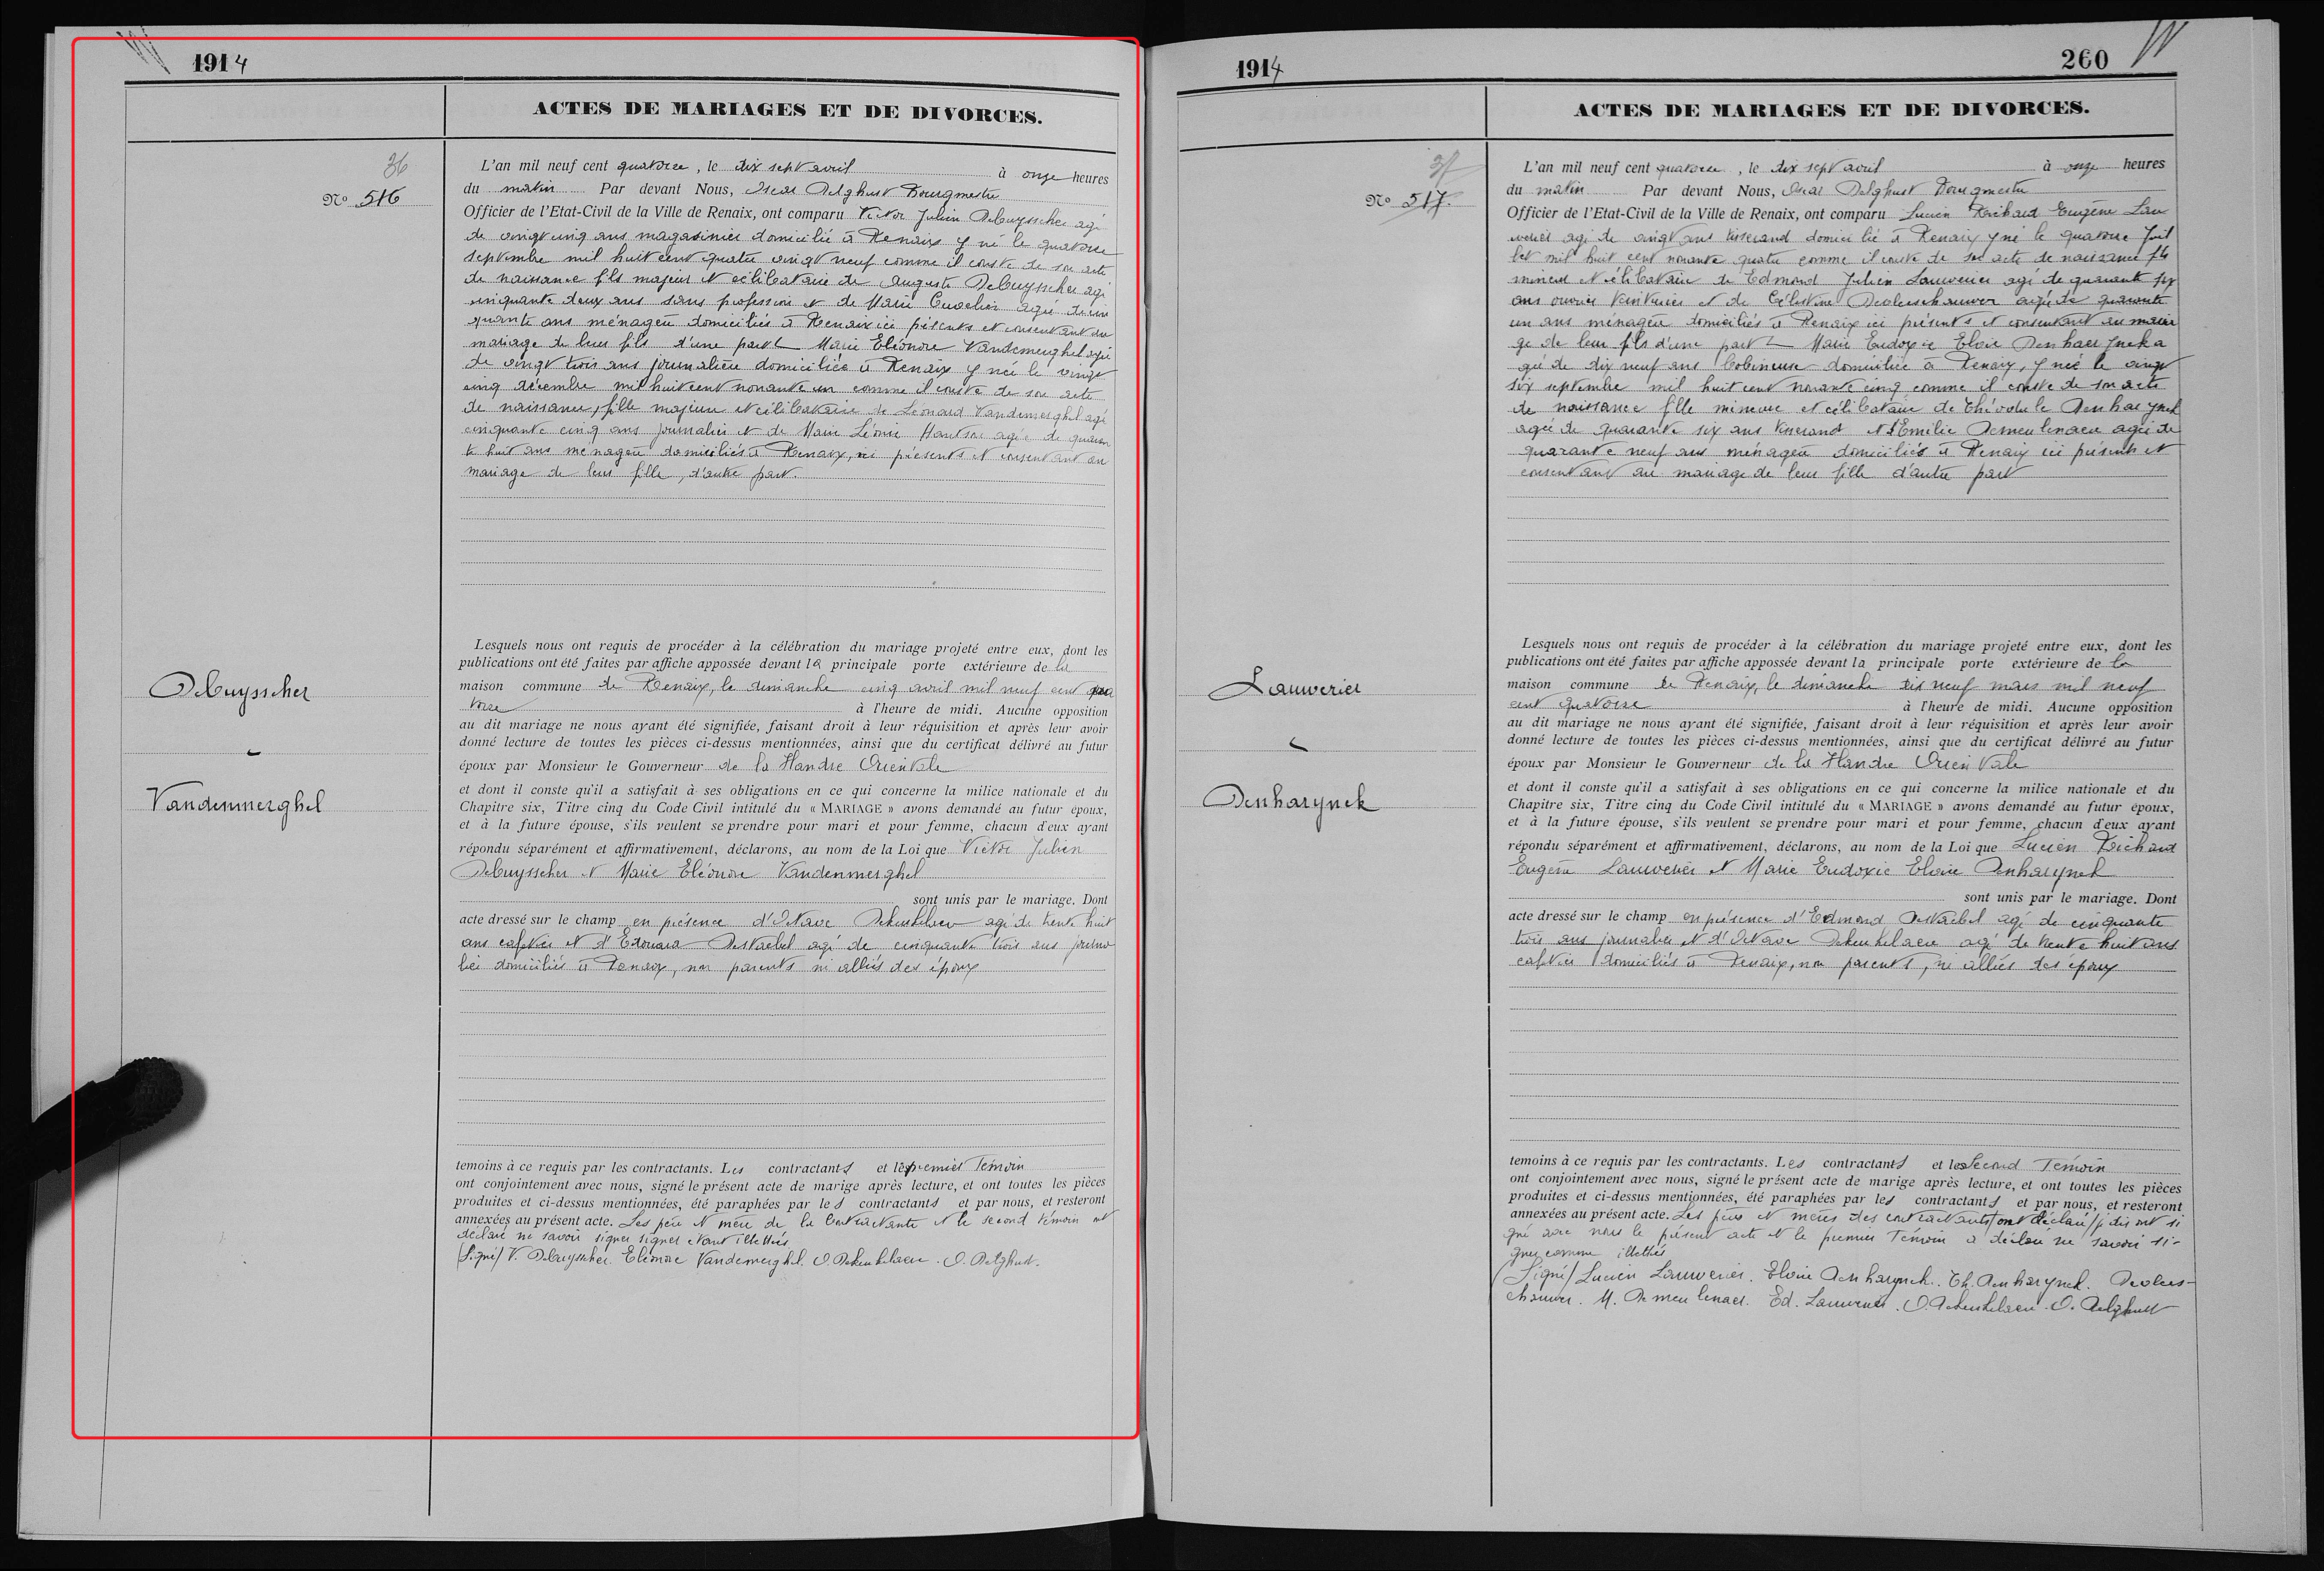 1914
ACTES DE MARIAGES ET DE DIVORCES.
36
No 516
L'an mil neuf cent quatorze, le dix sept avril à onze heures
du matin Par devant Nous, Oscar Delghust Bourgmestre
Officier de l'Etat-Civil de la Ville de Renaix, ont comparu Victor Julien Debuysscher agé
de vingt cinq ans magasinier domicilié à Renaix y né le quatorze
septembre mil huit cent quatre vingt neuf comme il conste de son acte
de naissance fils majeur et célibataire de Auguste Debuysscher agé
cinquante deux ans sans profession et de Marie Cuvelier agée de cin
quante ans ménagère domiciliés à Renaix ici présents et consentant au
mariage de leur fils d'une part Marie Eléonore Vandemerghel agée
de vingt trois ans journalière domiciliée à Renaix y née le vingt
cinq décembre mil huit cent nonante un comme il conste de son acte
de naissance, fille majeure et célibataire de Léonard Vandemerghel agé
cinquante cinq ans journalier et de Marie Léonie agée de quaran
te huit ans ménagère domiciliés à Renaix, ici présents et consentant au
mariage de leur fille, d'autre part.
Lesquels nous ont requis de procéder à la célébration du mariage projeté entre eux, dont les
publications ont été faites par affiche apposée devant la principale porte extérieure de la
maison commune de Renaix, le dimanche cinq avril mil neuf cent qua
torze à l'heure de midi. Aucune opposition
Debuysscher
au dit mariage ne nous ayant été signifiée, faisant droit à leur réquisition et après leur avoir
donné lecture de toutes les pièces ci-dessus mentionnées, ainsi que du certificat délivré au futur
époux par Monsieur le Gouverneur de la Flandre Orientale
et dont il conste qu'il a satisfait à ses obligations en ce qui concerne la milice nationale et du
Vandenmerghel
Chapitre six, Titre cinq du Code Civil intitulé du « MARIAGE » avons demandé au futur époux,
et à la future épouse, s'ils veulent se prendre pour mari et pour femme, chacun d'eux ayant
répondu séparément et affirmativement, déclarons, au nom de la Loi que Victor Julien
Debuysscher et Marie Eléonore Vandenmerghel
sont unis par le mariage. Dont
acte dressé sur le champ en présence d'Octave Dekeukelaere agé de trente huit
ans cafetier et d'Edouard Destaebel agé de cinquante trois ans journa
lier domiciliés à Renaix, non parents ni alliés des époux
temoins à ce requis par les contractants. Les contractants et le premier Témoin
ont conjointement avec nous, signé le présent acte de marige après lecture, et ont toutes les pièces
produites et ci-dessus mentionnées, été paraphées par les contractants et par nous, et resteront
annexées au présent acte. Les père et mère de la contractante et le second témoin ont
déclaré ne savoir signer signer étant illettrés
(Signé) V. Debuysscher. Eléonore Vandemerghel. O. Dekeukelaere. O. Delghust.
1914
260
ACTES DE MARIAGES ET DE DIVORCES.
37
No 517.
L'an mil neuf cent quatorze, le dix sept avril à onze heures
du matin Par devant Nous, Oscar Delghust Bourgmestre
Officier de l'Etat-Civil de la Ville de Renaix, ont comparu Lucien Richard Eugène Lau
werier agé de vingt ans tisserand domicilié à Renaix y né le quatorze Juil
let mil huit cent nonante quatre comme il conste de son acte de naissance fils
mineur et célibataire de Edmond Julien Lauwerier agé de quarante six
ans ouvrier teinturier et de Célestine Devleeschauwer agée de quarante
un ans ménagère domiciliés à Renaix ici présents et consentant au maria
ge de leur fils d'une part Marie Eudoxie Eloïe Denhaerynck a
gée de dix neuf ans bobineuse domiciliée à Renaix, y née le vingt
six septembre mil huit cent nonante cinq comme il conste de son acte
de naissance fille mineure et célibataire de Théodule Denhaerynck
agé de quarante six ans tisserand et d'Emilie Demeulenaere agée de
quarante neuf ans ménagère domiciliés à Renaix ici présents et
consentant au mariage de leur fille d'autre part
Lesquels nous ont requis de procéder à la célébration du mariage projeté entre eux, dont les
publications ont été faites par affiche apposée devant la principale porte extérieure de la
maison commune de Renaix, le dimanche dix neuf mars mil neuf
cent quatorze à l'heure de midi. Aucune opposition
Lauwerier
au dit mariage ne nous ayant été signifiée, faisant droit à leur réquisition et après leur avoir
donné lecture de toutes les pièces ci-dessus mentionnées, ainsi que du certificat délivré au futur
époux par Monsieur le Gouverneur de la Flandre Orientale
et dont il conste qu'il a satisfait à ses obligations en ce qui concerne la milice nationale et du
Denharynck
Chapitre six, Titre cinq du Code Civil intitulé du « MARIAGE » avons demandé au futur époux,
et à la future épouse, s'ils veulent se prendre pour mari et pour femme, chacun d'eux ayant
répondu séparément et affirmativement, déclarons, au nom de la Loi que Lucien Richard
Eugène Lauwerier et Marie Eudoxie Eloïe Denharynck
sont unis par le mariage. Dont
acte dressé sur le champ en présence d'Edmond Destaebel agé de cinquante
trois ans journalier et d'Octave Dekeukelaere agé de trente huit ans
cafetier domiciliés à Renaix, non parents, ni alliés des époux
temoins à ce requis par les contractants. Les contractants et le second Témoin
ont conjointement avec nous, signé le présent acte de marige après lecture, et ont toutes les pièces
produites et ci-dessus mentionnées, été paraphées par les contractants et par nous, et resteront
annexées au présent acte. Les pères et mères des contractants ont déclaré je dis ont si
gné avec nous le présent acte et le premier Témoin a déclaré ne savoir si-
gner comme illettré
(Signé) Lucien Lauwerier. Eloïe Denharynck. Th. Denharynck. Devlees-
chauwer. M. Demeulenaer. Ed. Lauwerier. O. Dekeukelaere. O. Delghust